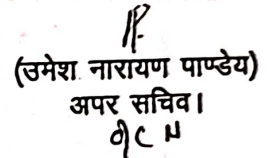 (उमेश नारायण पाण्डेय)
अपर सचिव।